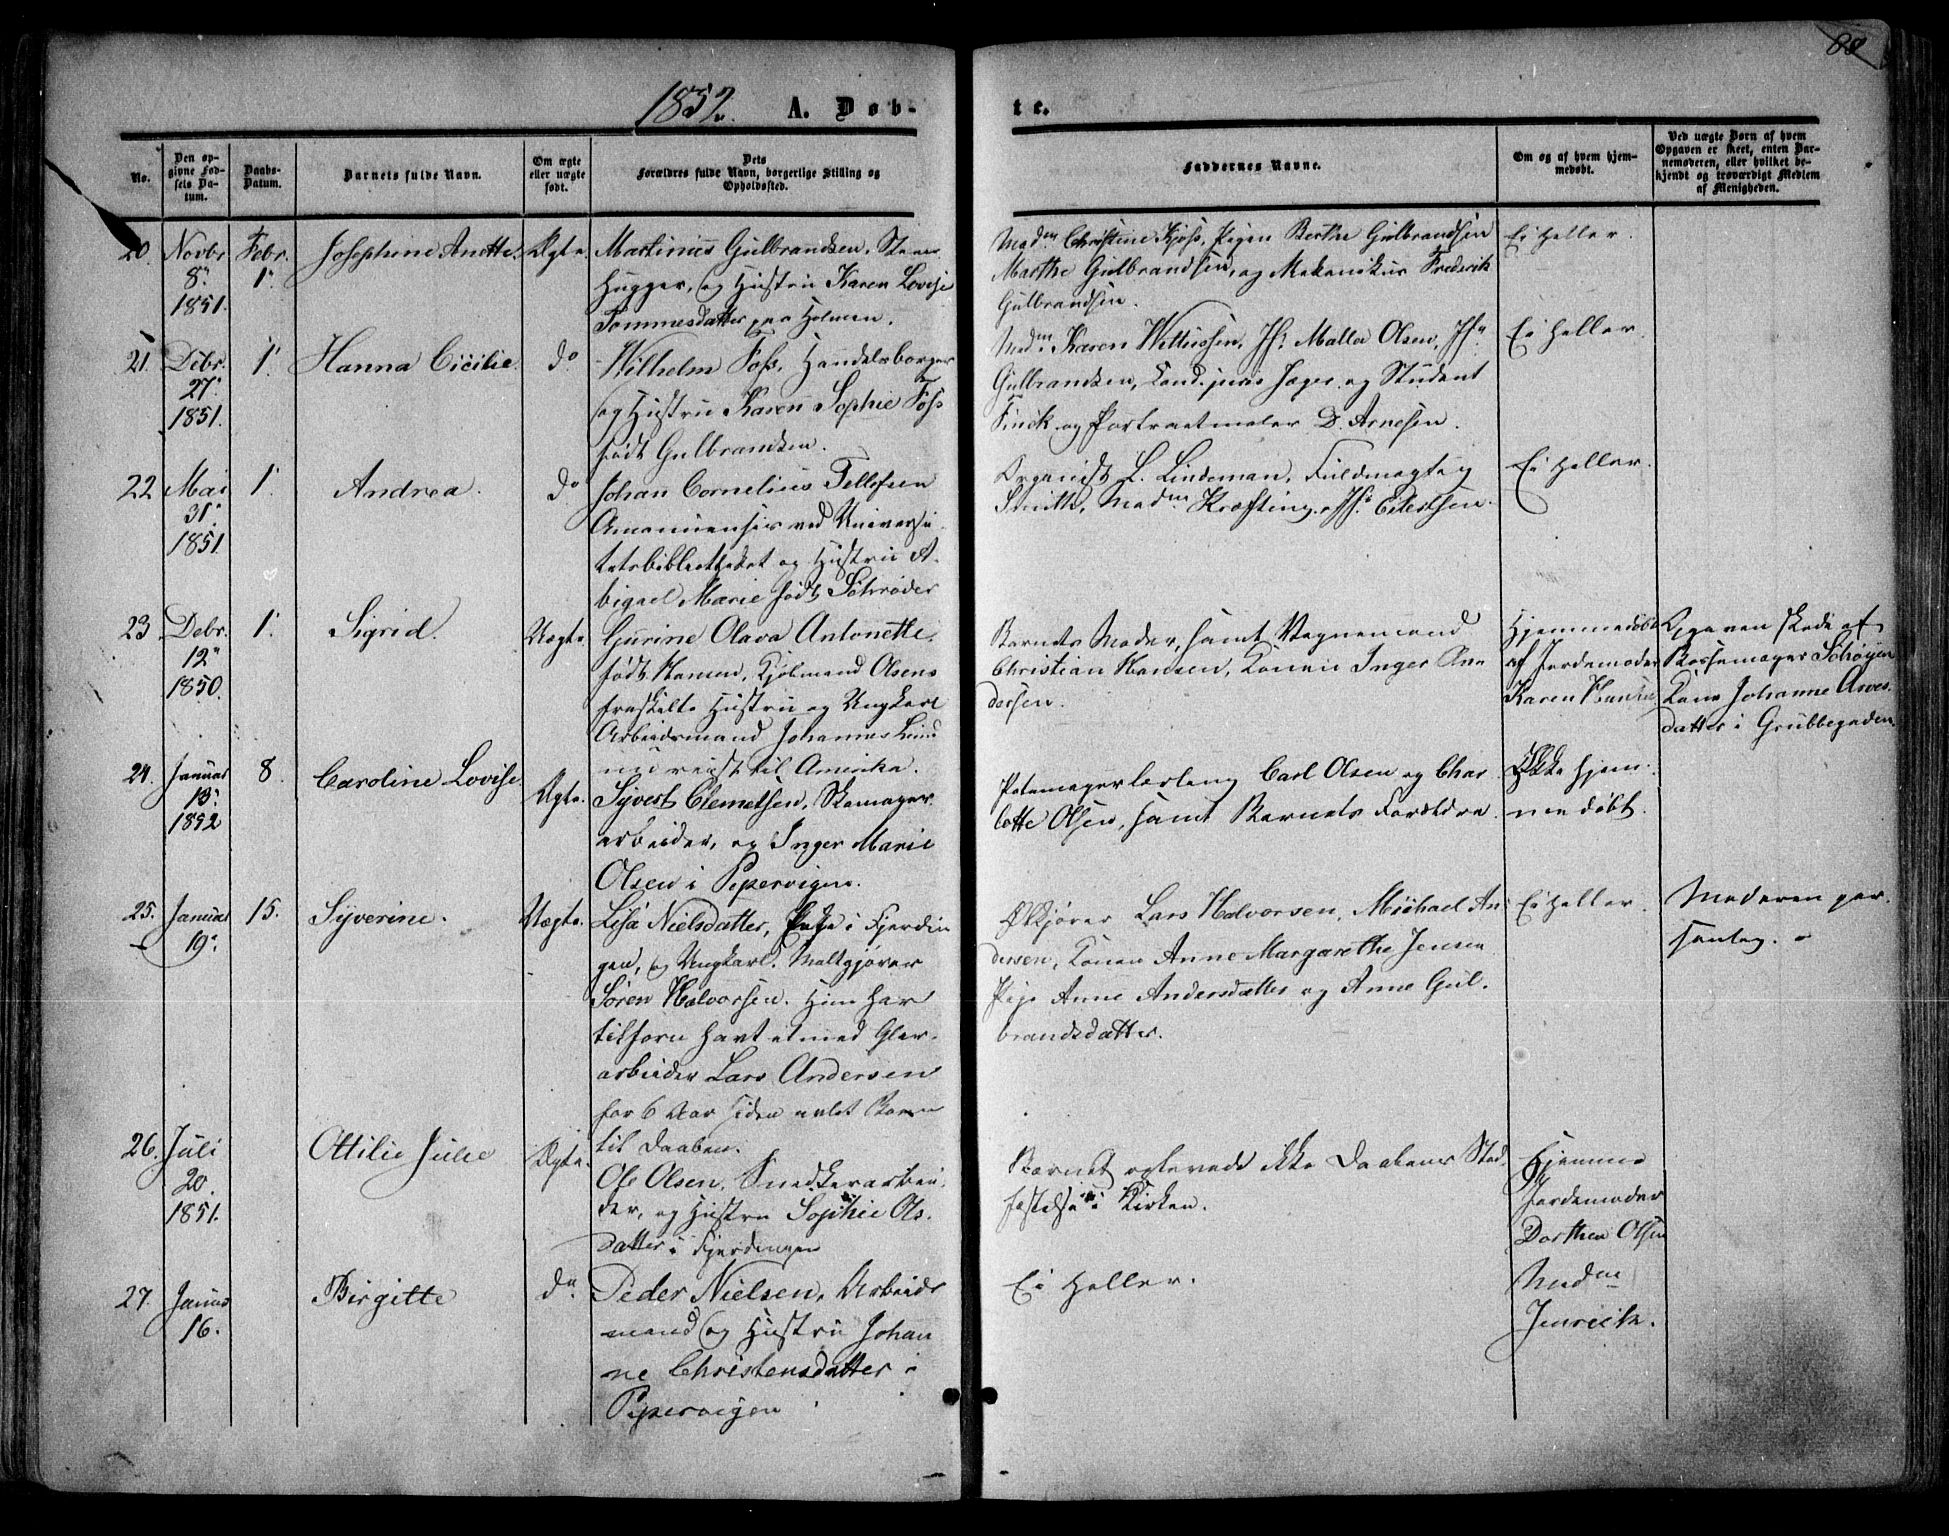 88
1852. A. Døb-
te.
No.
Den op-
givne Fød-
sels Da-
tum.
Daabs-
Datum.
Barnets fulde Navn.
Om ægte
eller uægte
født.
Dets
Forældres fulde Navn, borgerlige Stilling og
Opholdssted.
Faddernes Navne.
Om og af hvem hjem-
medøbt.
Ved uægte Børn af hvem
Opgaven er skeet, enten Bar-
nemoderen, eller hvilket be-
kjendt og troværdigt Medlem
af Menigheden.
20. Novbr Febr. Josephine Anette. Ægte
8.
1.
1851.
Martinus Gulbrandsen, Steen-
hugger, og Hustru Karen Lovise
Tommesdatter paa Holmen.
Mad.m Christine Kjøss, Pigen Berthe Gulbrandsen
Marthe Gulbrandsen, og Mekanikus Frederik
Gulbrandsen.
Ei heller.
21. Debr. 1. Hanna Cicilie. Do
27.
1851.
Wilhelm Foss, Handelsborger
og Hustru Karen Sophie Foss
født Gulbrandsen.
Mad.m Karen Wittussen, Jfr. Malla Olsen, Jfr.
Gulbrandsen, Cand. juris Jæger og Student
Finck og Portraitmaler D. Arnesen.
Ei heller.
22 Mai 1. Andrea. Do
31.
1851
Johan Cornelius Tellefsen
Amanuensis ved Universi-
tetsbibliotheket og Hustru A-
bigael Marie født Schrøder
Organist L. Lindeman, Fuldmægtig
Smith, Mad.m Kræfting, Jfr. Eilertsen.
Ei heller.
23 Debr. 1. Sigrid. Uægte
12
1850.
Gurine Olava Antonette,
født Hansen, Kjølmand Olsens
fraskilte Hustru og Ungkarl
Arbeidsmand Johannes Lund
nu reist til Amerika.
Barnets Moder, samt Vognmand
Christian Hansen, Konen Inger An-
dersen.
Hjemmedøbt
af Jordemoder
Karen Hansen
Opgaven skede af
Børsemager Schøyen
Kone Johanne Arnes-
datter i Grubbegaden
24. Januar 8. Caroline Lovise. Ægte.
13.
1852
Syvert Clemetsen, Skomager-
arbeider, og Inger Marie
Olsen i Pipervigen.
Pottemagerlærling Carl Olsen og Char-
lotte Olsen, samt Barnets Forældre.
Ikke hjem-
medøbt.
25. Januar 15. Syverine. Uægte.
19.
Lisa Nielsdatter, Pige i Fjerdin-
gen, og Ungkarl, Maltgjører
Søren Halvorsen. Hun har
tilforn havt et med Glar-
arbeider Lars Andersen
for 6 Aar siden avlet Barn
til Daaben.
Ølkjører Lars Halvorsen, Michael An-
dersen, Konen Anne Margarethe Jensen
Pige Anne Andersdatter og Anne Gul-
brandsdatter.
Ei heller.
Moderen per-
sonlig.
26. Juli Ottilie Julie Ægte.
20.
1851.
Ole Olsen, Snedkerarbei-
der, og Hustru Sophie Ols-
datter i Fjerdingen
Barnet oplevede ikke Daabens Stad-
fæstelse i Kirken.
Hjemme
Jordemoder
Dorthea Olsen
27. Januar Birgitte Do.
16.
Peder Nielsen, Arbeids-
mand og Hustru Johan-
ne Christensdatter i
Pipervigen
Ei heller.
Mad.me